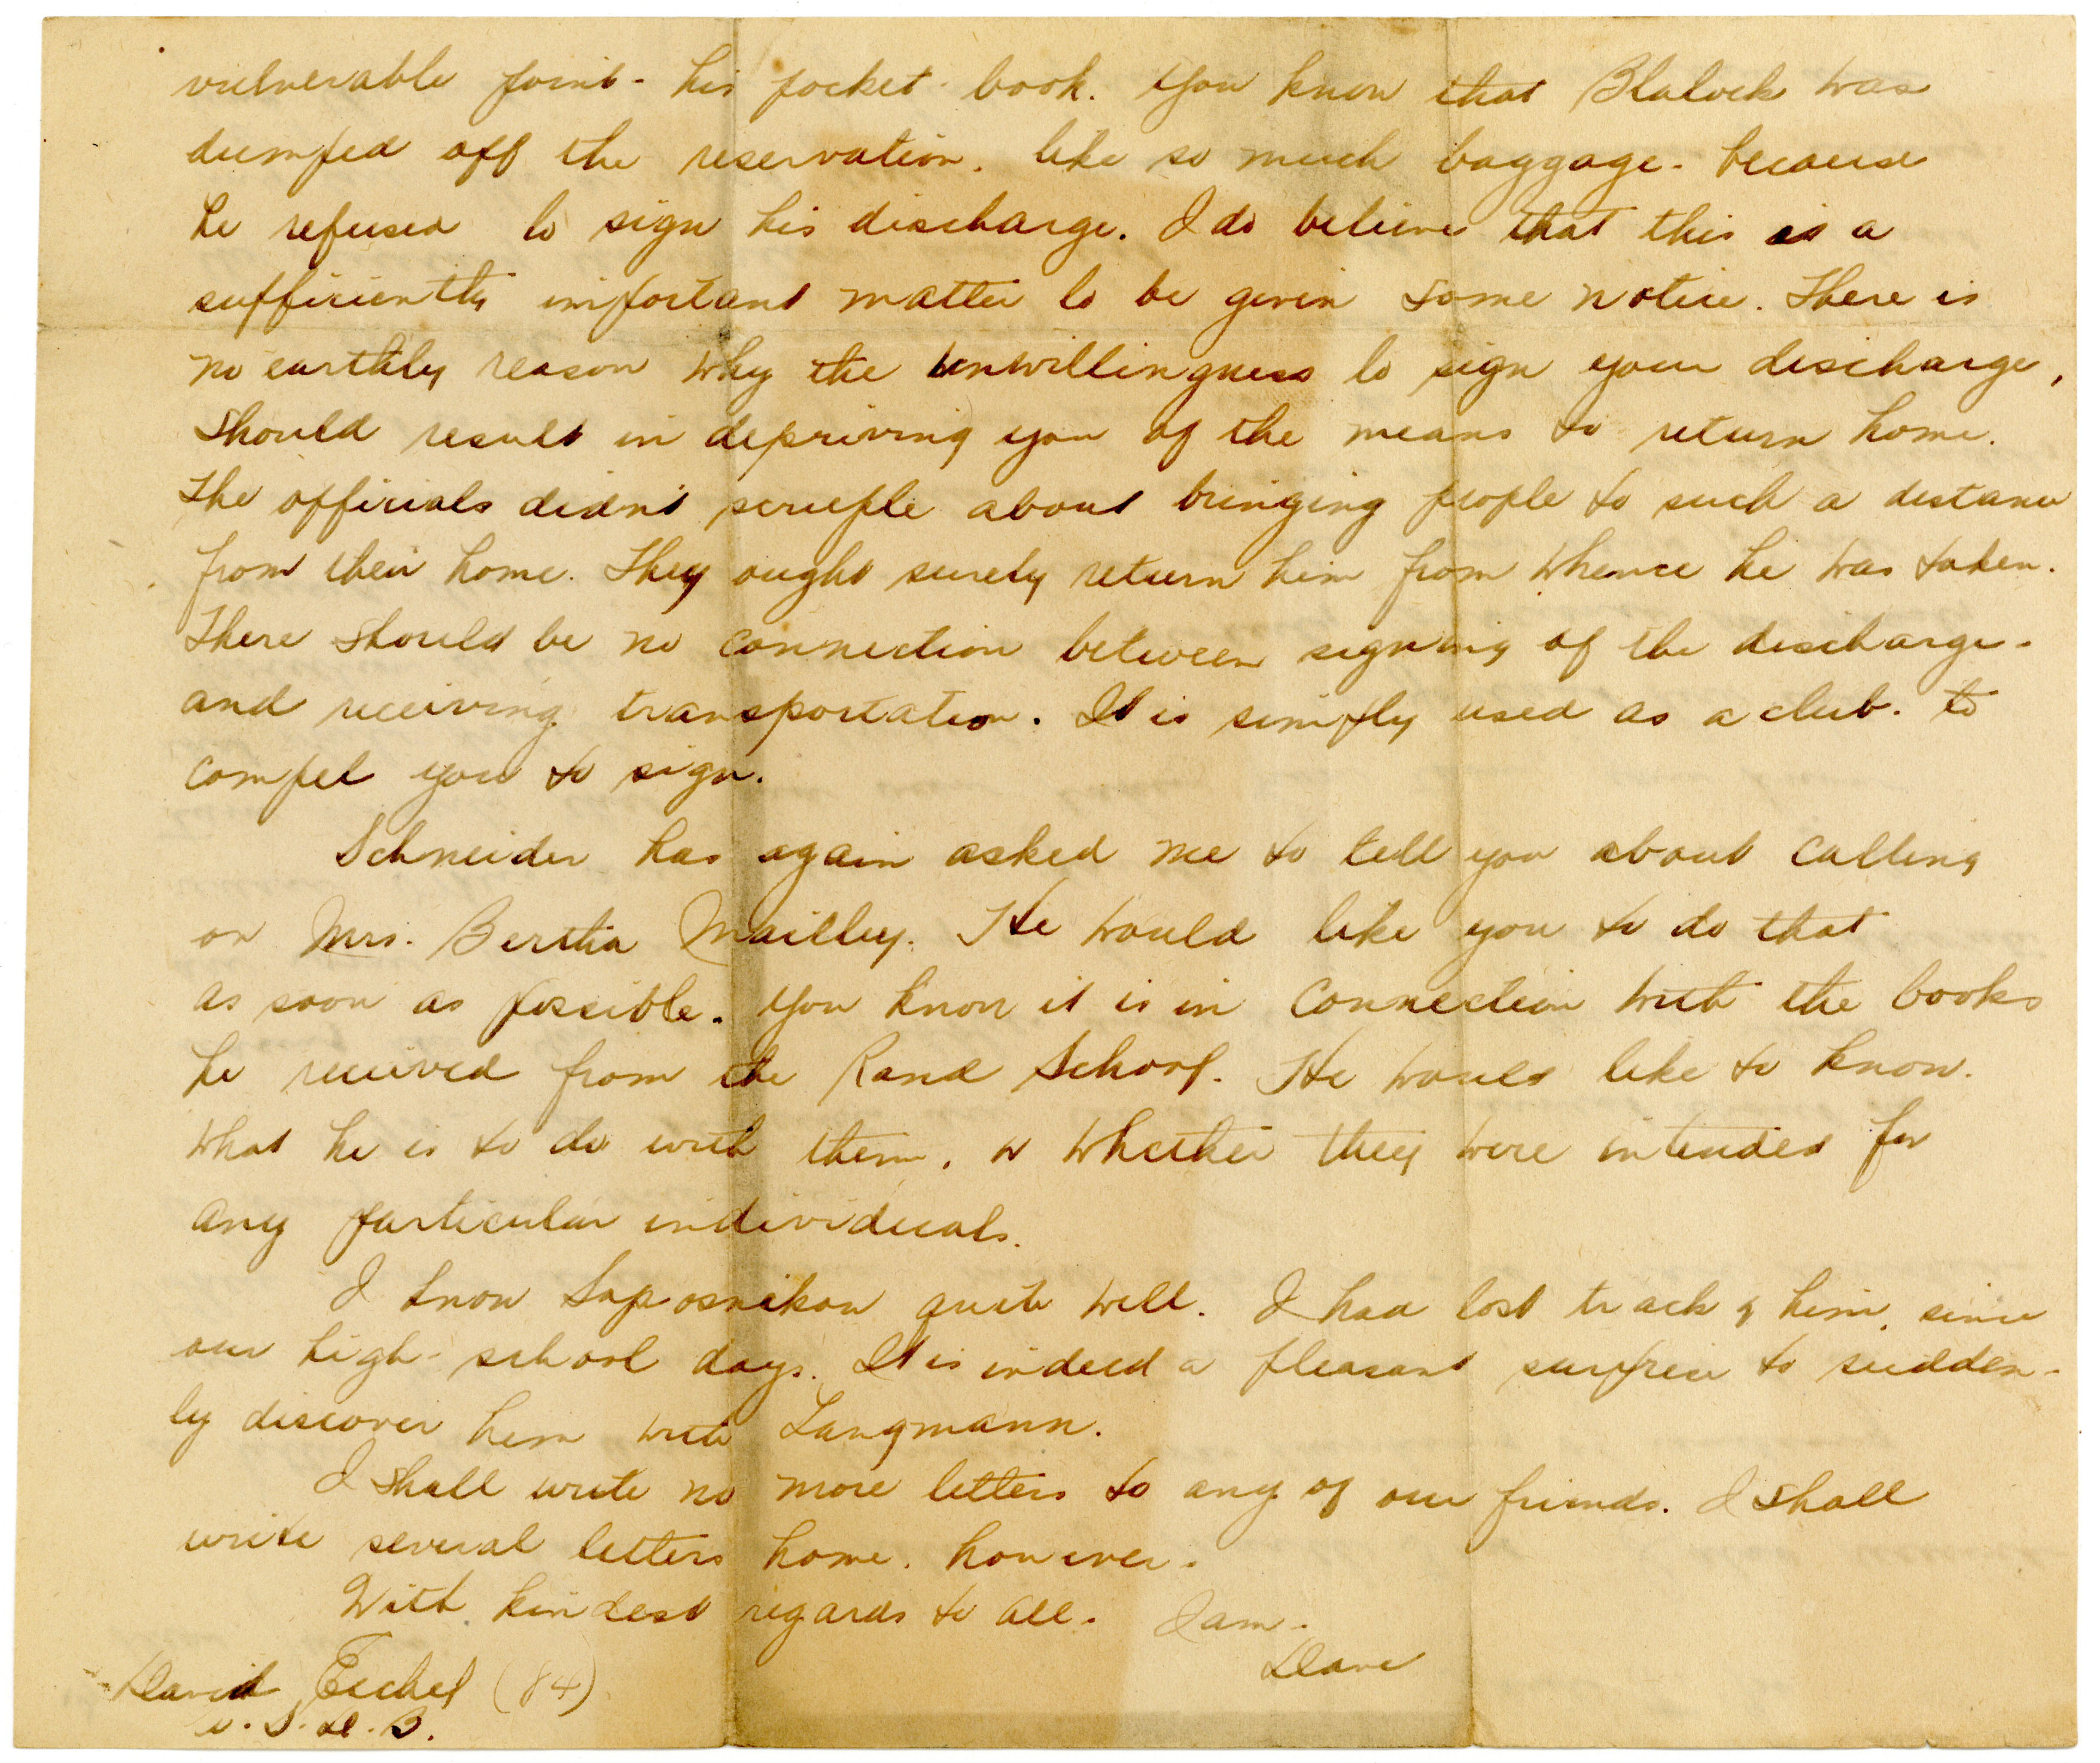 vulnerable point - his pocket-book. You know that Blalock was
dumped off the reservation, like so much baggage - because
he refused to sign his discharge. I do believe that this is a
sufficiently important matter to be given some notice. There is
no earthly reason why the unwillingness to sign your discharge,
should result in depriving you of the means to return home.
The officials didn't scruple about bringing people to such a distance
from their home. They ought surely return him from whence he was taken.
There should be no connection between signing of the discharge -
and receiving transportation. It is simply used as a club. to
compel you to sign.
Schneider has again asked me to tell you about calling
on Mrs. Bertha Mailley. He would like you to do that
as soon as possible. You know it is in connection with the books
he received from the Rand School. He would like to know.
what he is to do with them, or whether they were intended for
any particular individuals.
I know Saposnikow quite well. I had lost track of him, since
our high-school days. It is indeed a pleasant surprise to sudden-
ly discover him with Langmann.
I shall write no more letters to any of our friends. I shall
write several letters home. however.
With kindest regards to all. I am -
Dave
David Eichel (84)
U.S.D.B.